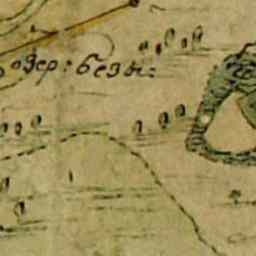 озер: безы: